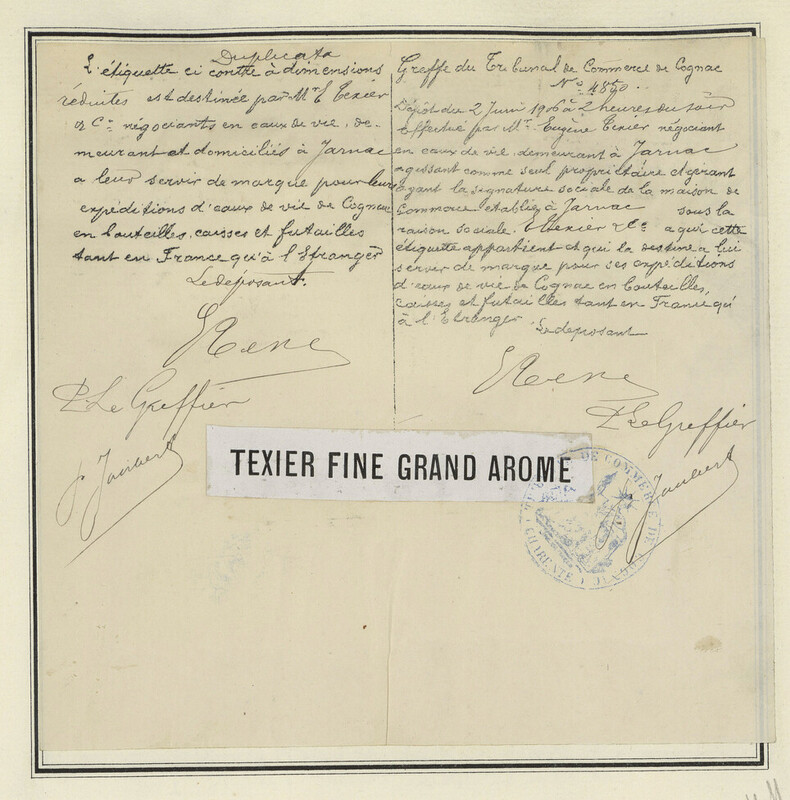 Duplicata
L'étiquette ci contre à dimensions
réduites est destinée par Mr E Texier
& Cie négociants en eaux de vie, de-
meurant et domiciliés à Jarnac
a leur servir de marque pour leurs
expéditions d'eaux de vie de Cognac
en bouteilles, caisses et futailles
tant en France qu'à l'Etranger
Le déposant.
P. Le Greffier
Greffe du Tribunal de Commerce de Cognac
No
Dépôt du 2 Juin 1906 à 2 heures du soir
Effectué par Mr Eugène Texier négociant
en eaux de vie demeurant à Jarnac
agissant comme seul propriétaire et gérant
ayant la signature sociale de la maison de
Commerce établie à Jarnac sous la
raison sociale E Texier & Cie a qui cette
étiquette appartient et qui la destine a lui
servir de marque pour ses expéditions
d'eaux de vie de Cognac en bouteilles,
caisses et futailles tant en France qu'
à l'Etranger
Le deposant
P. Le Greffier
TEXIER FINE GRAND AROME
DE COMMERCE DE
CHARENTE